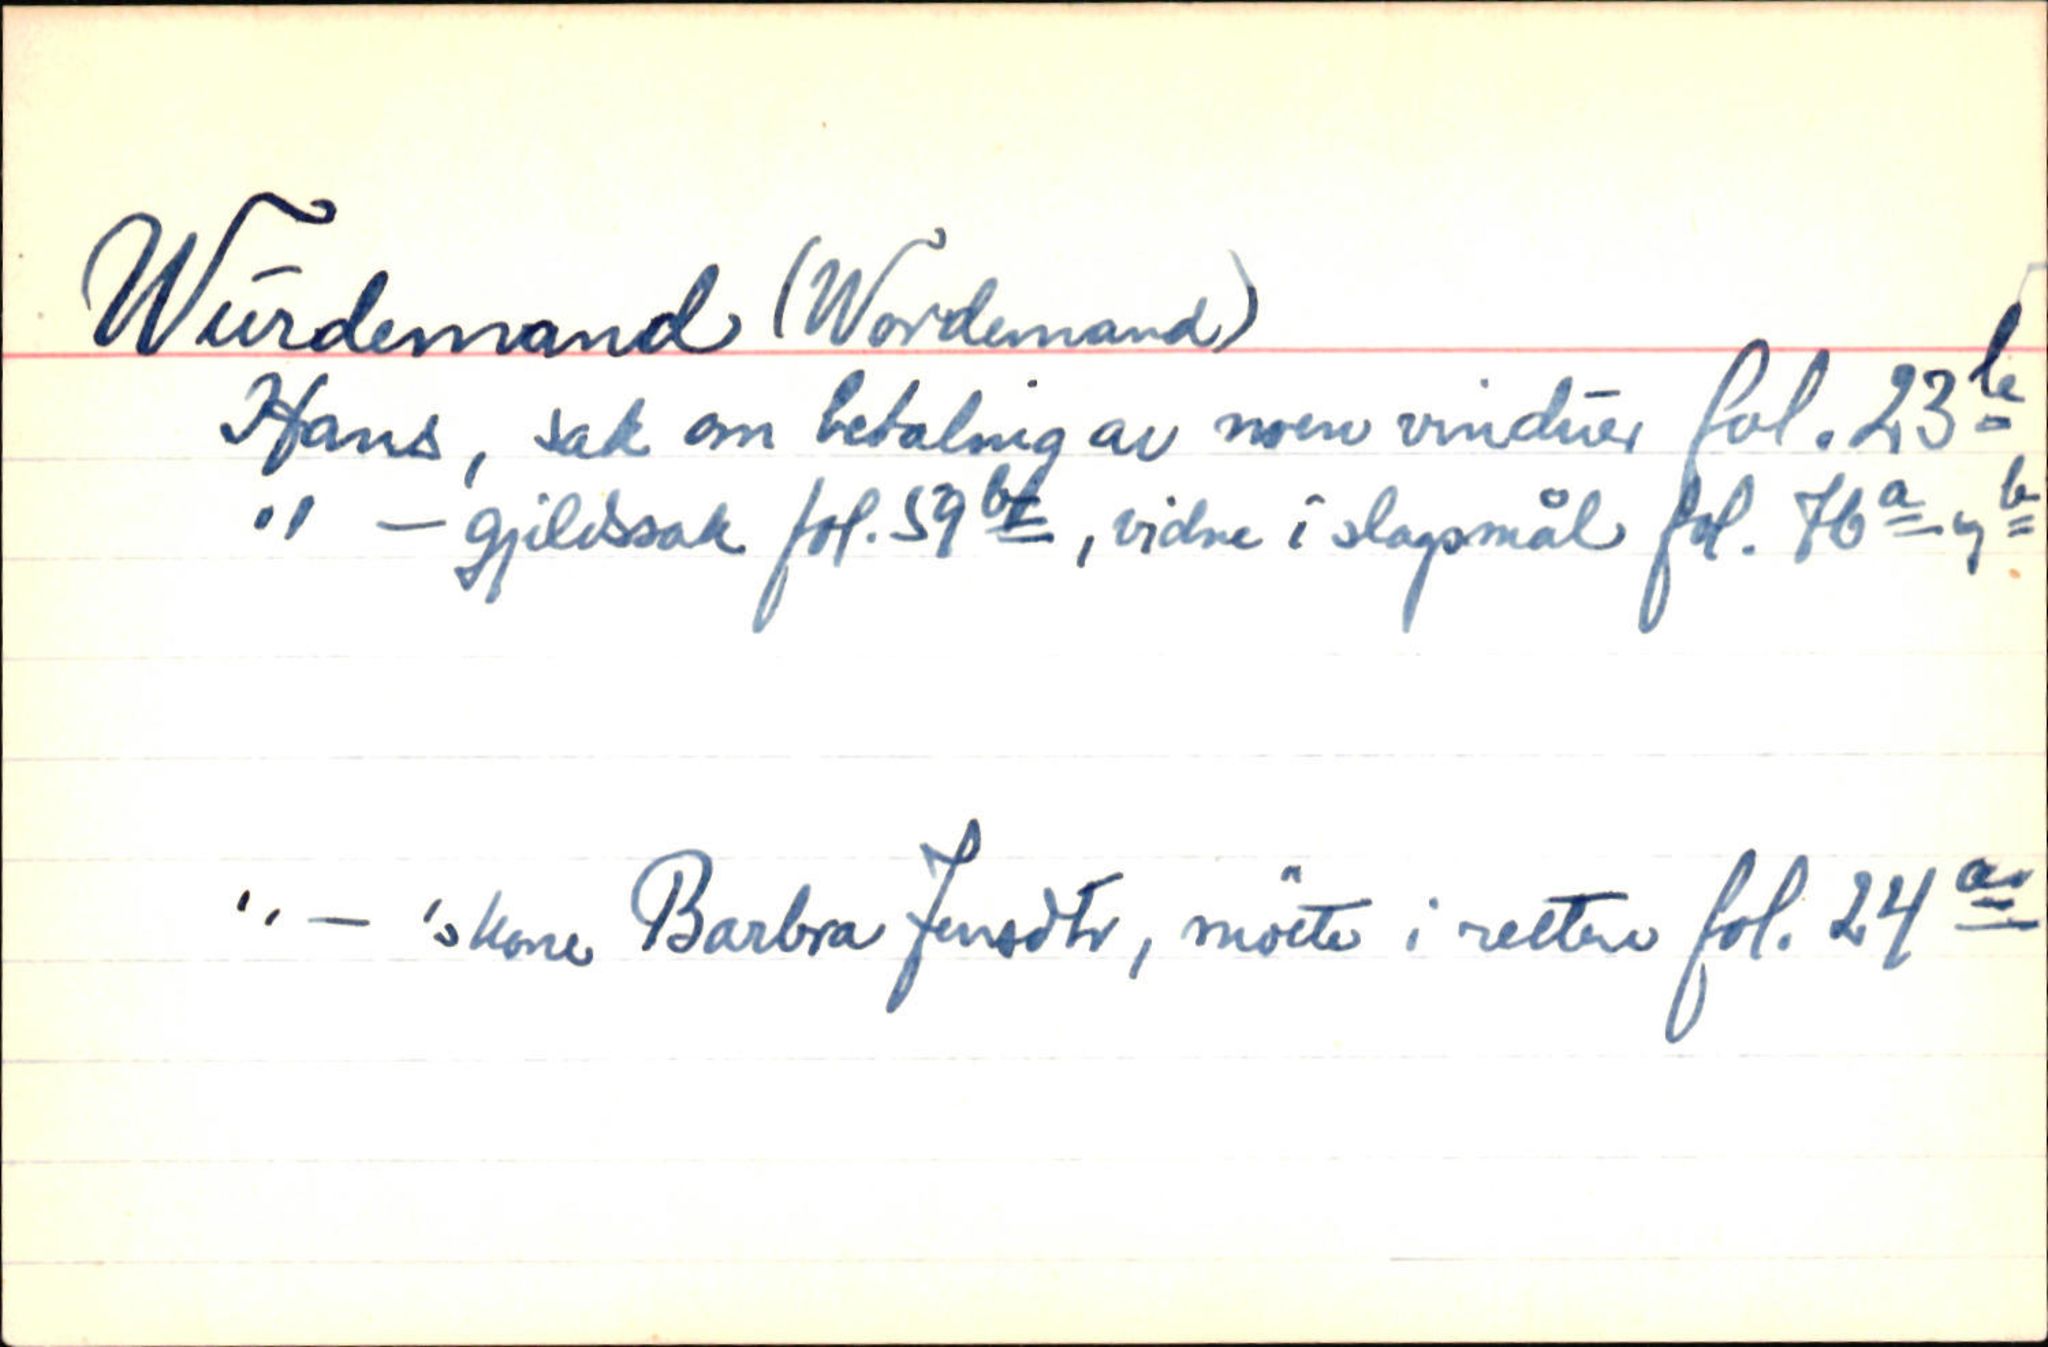 Würdemand (Wordemand)
Hans, sak om betalnig av noen vinduer fol. 23 b
" — gjeldssak fol. 59 b, vidne i slagsmål fol. 76 a og b
" — 's kone Barbra Jensdtr, møtte i retten fol. 24 a